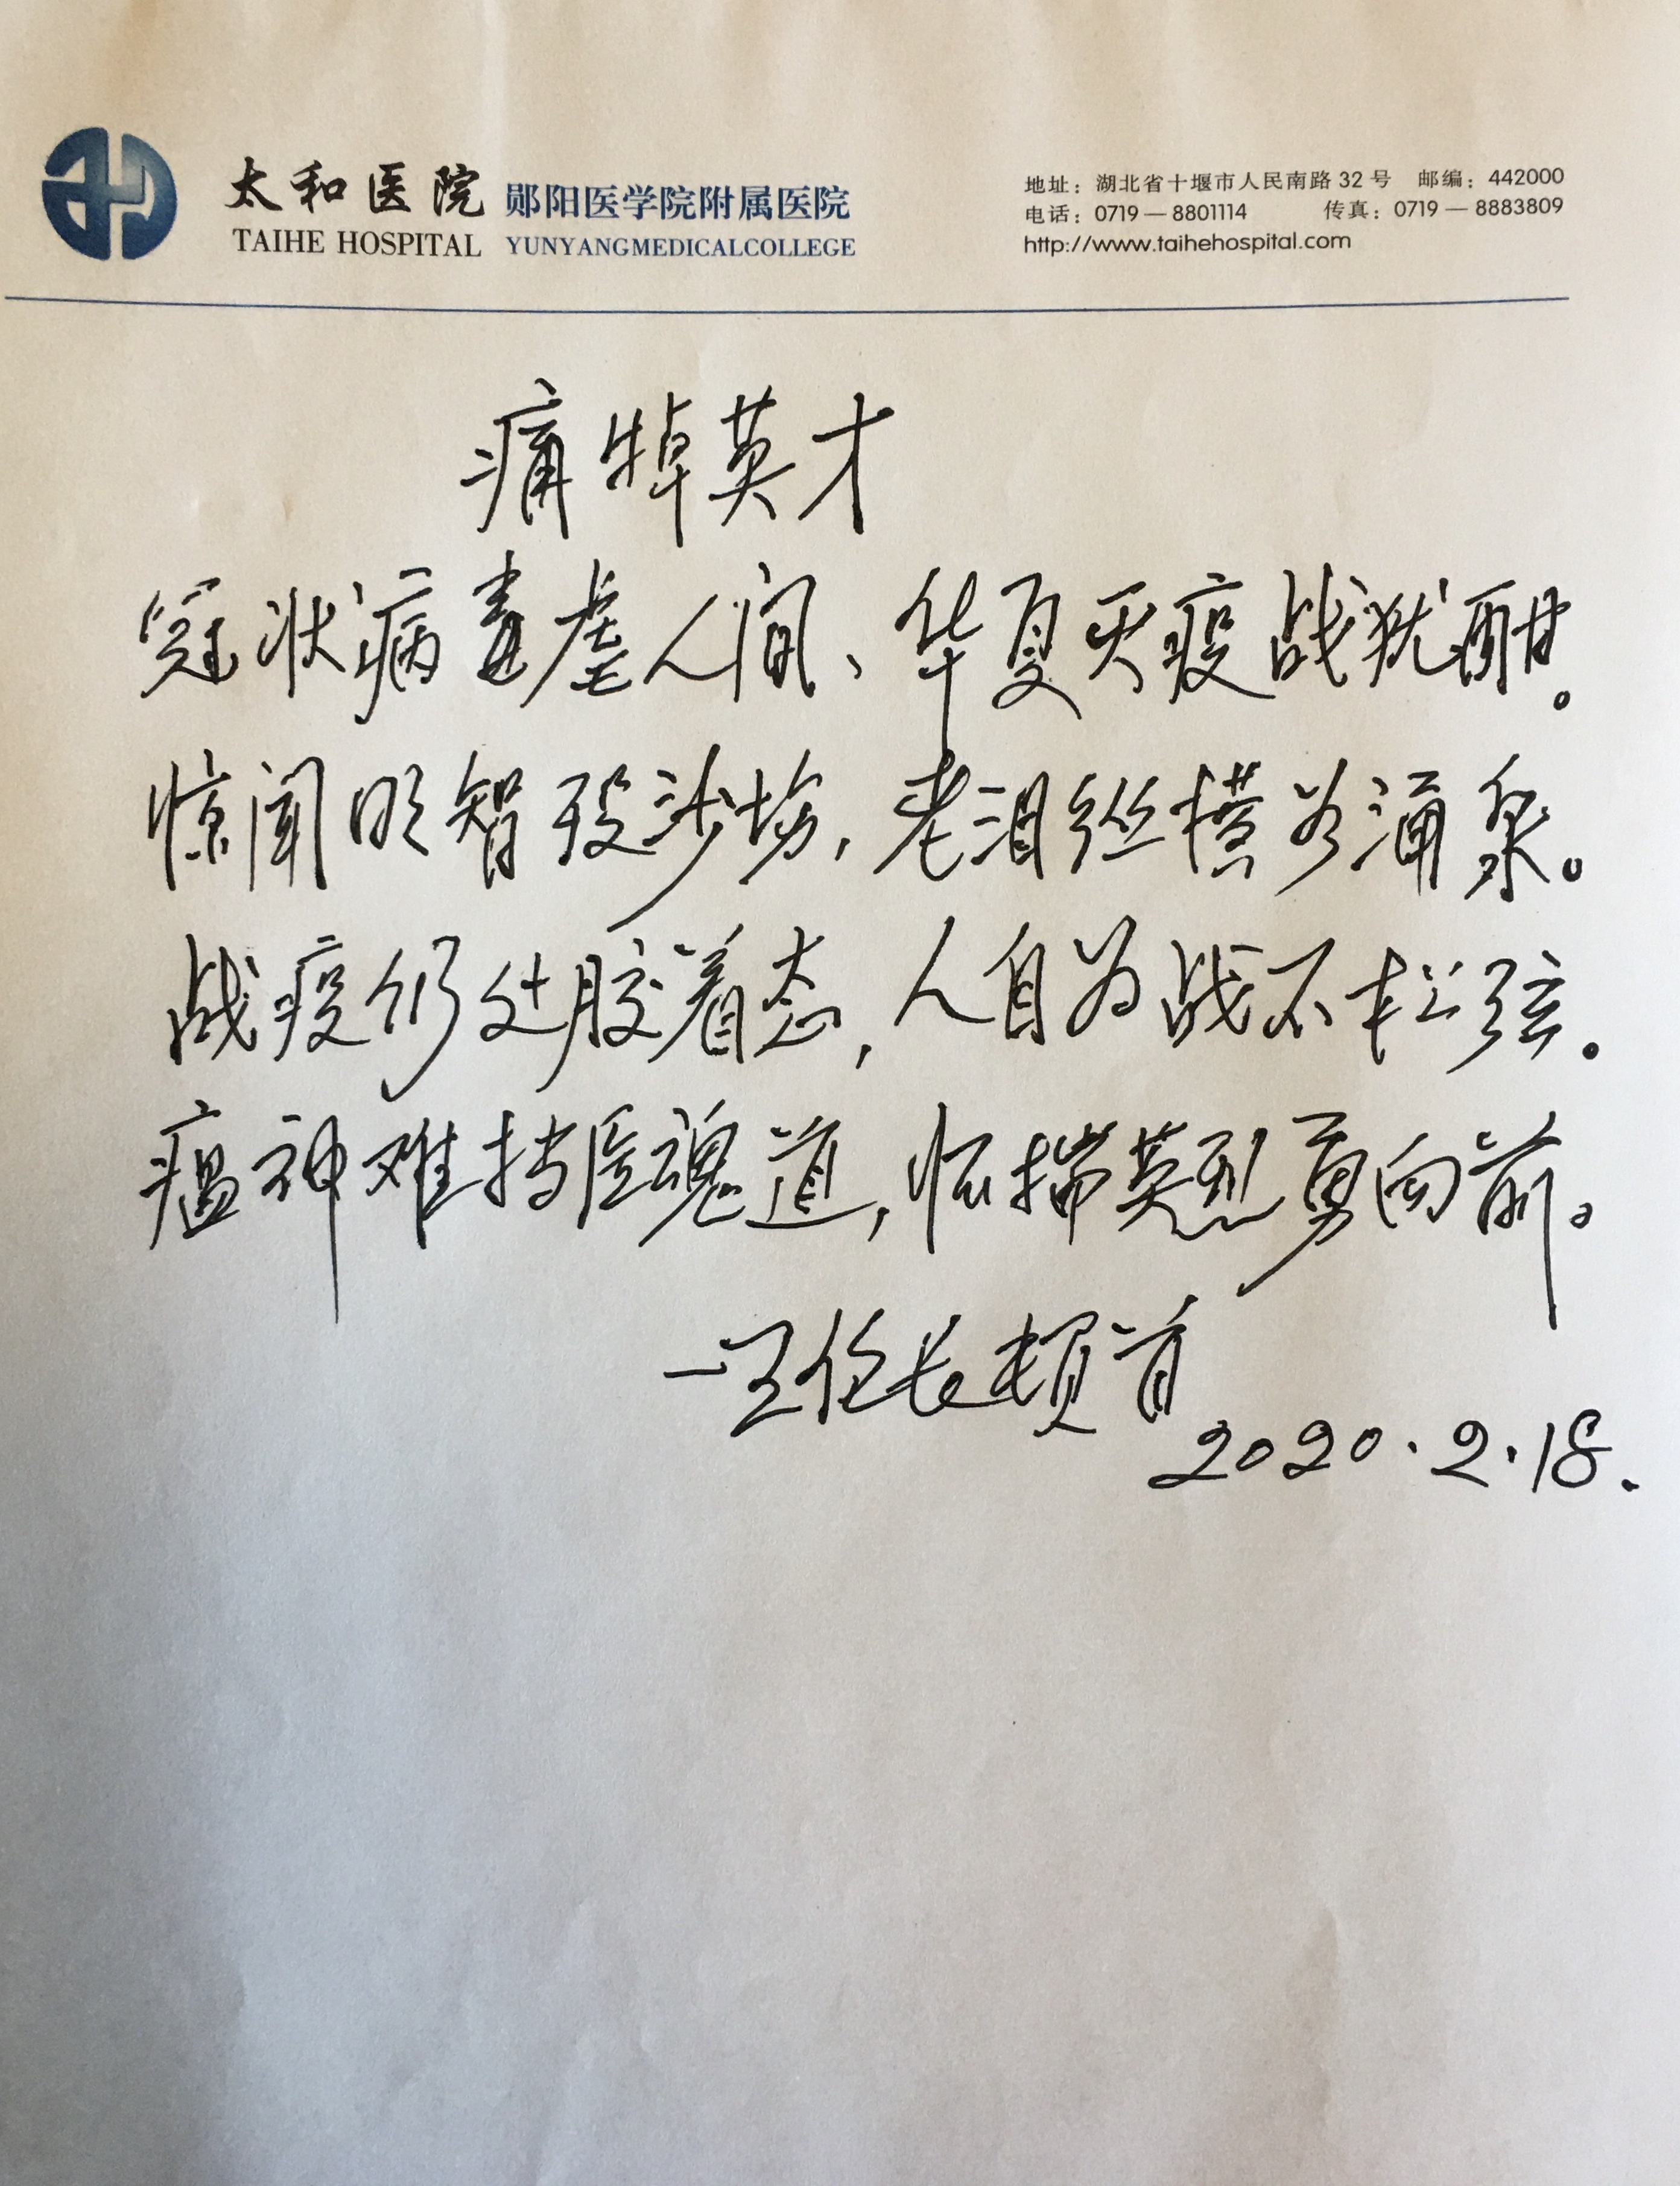 太和医院 郧阳医学院附属医院
TAIHE HOSPITAL YUNYANGMEDICALCOLLEGE
地址：湖北省十堰市人民南路 32 号 邮编：442000
电话：0719 — 8801114 传真：0719 — 8883809
http://www.taihehospital.com
痛悼英才
冠状病毒虐人间、华夏灭疫战犹酣。
惊闻明智殁沙场，老泪丝横为涌泉。
战疫仍处胶着态，人自为战不松弦。
瘟神难挡医魂道，怀揣英烈勇向前。
一王伦长顿首
2020.2.18.